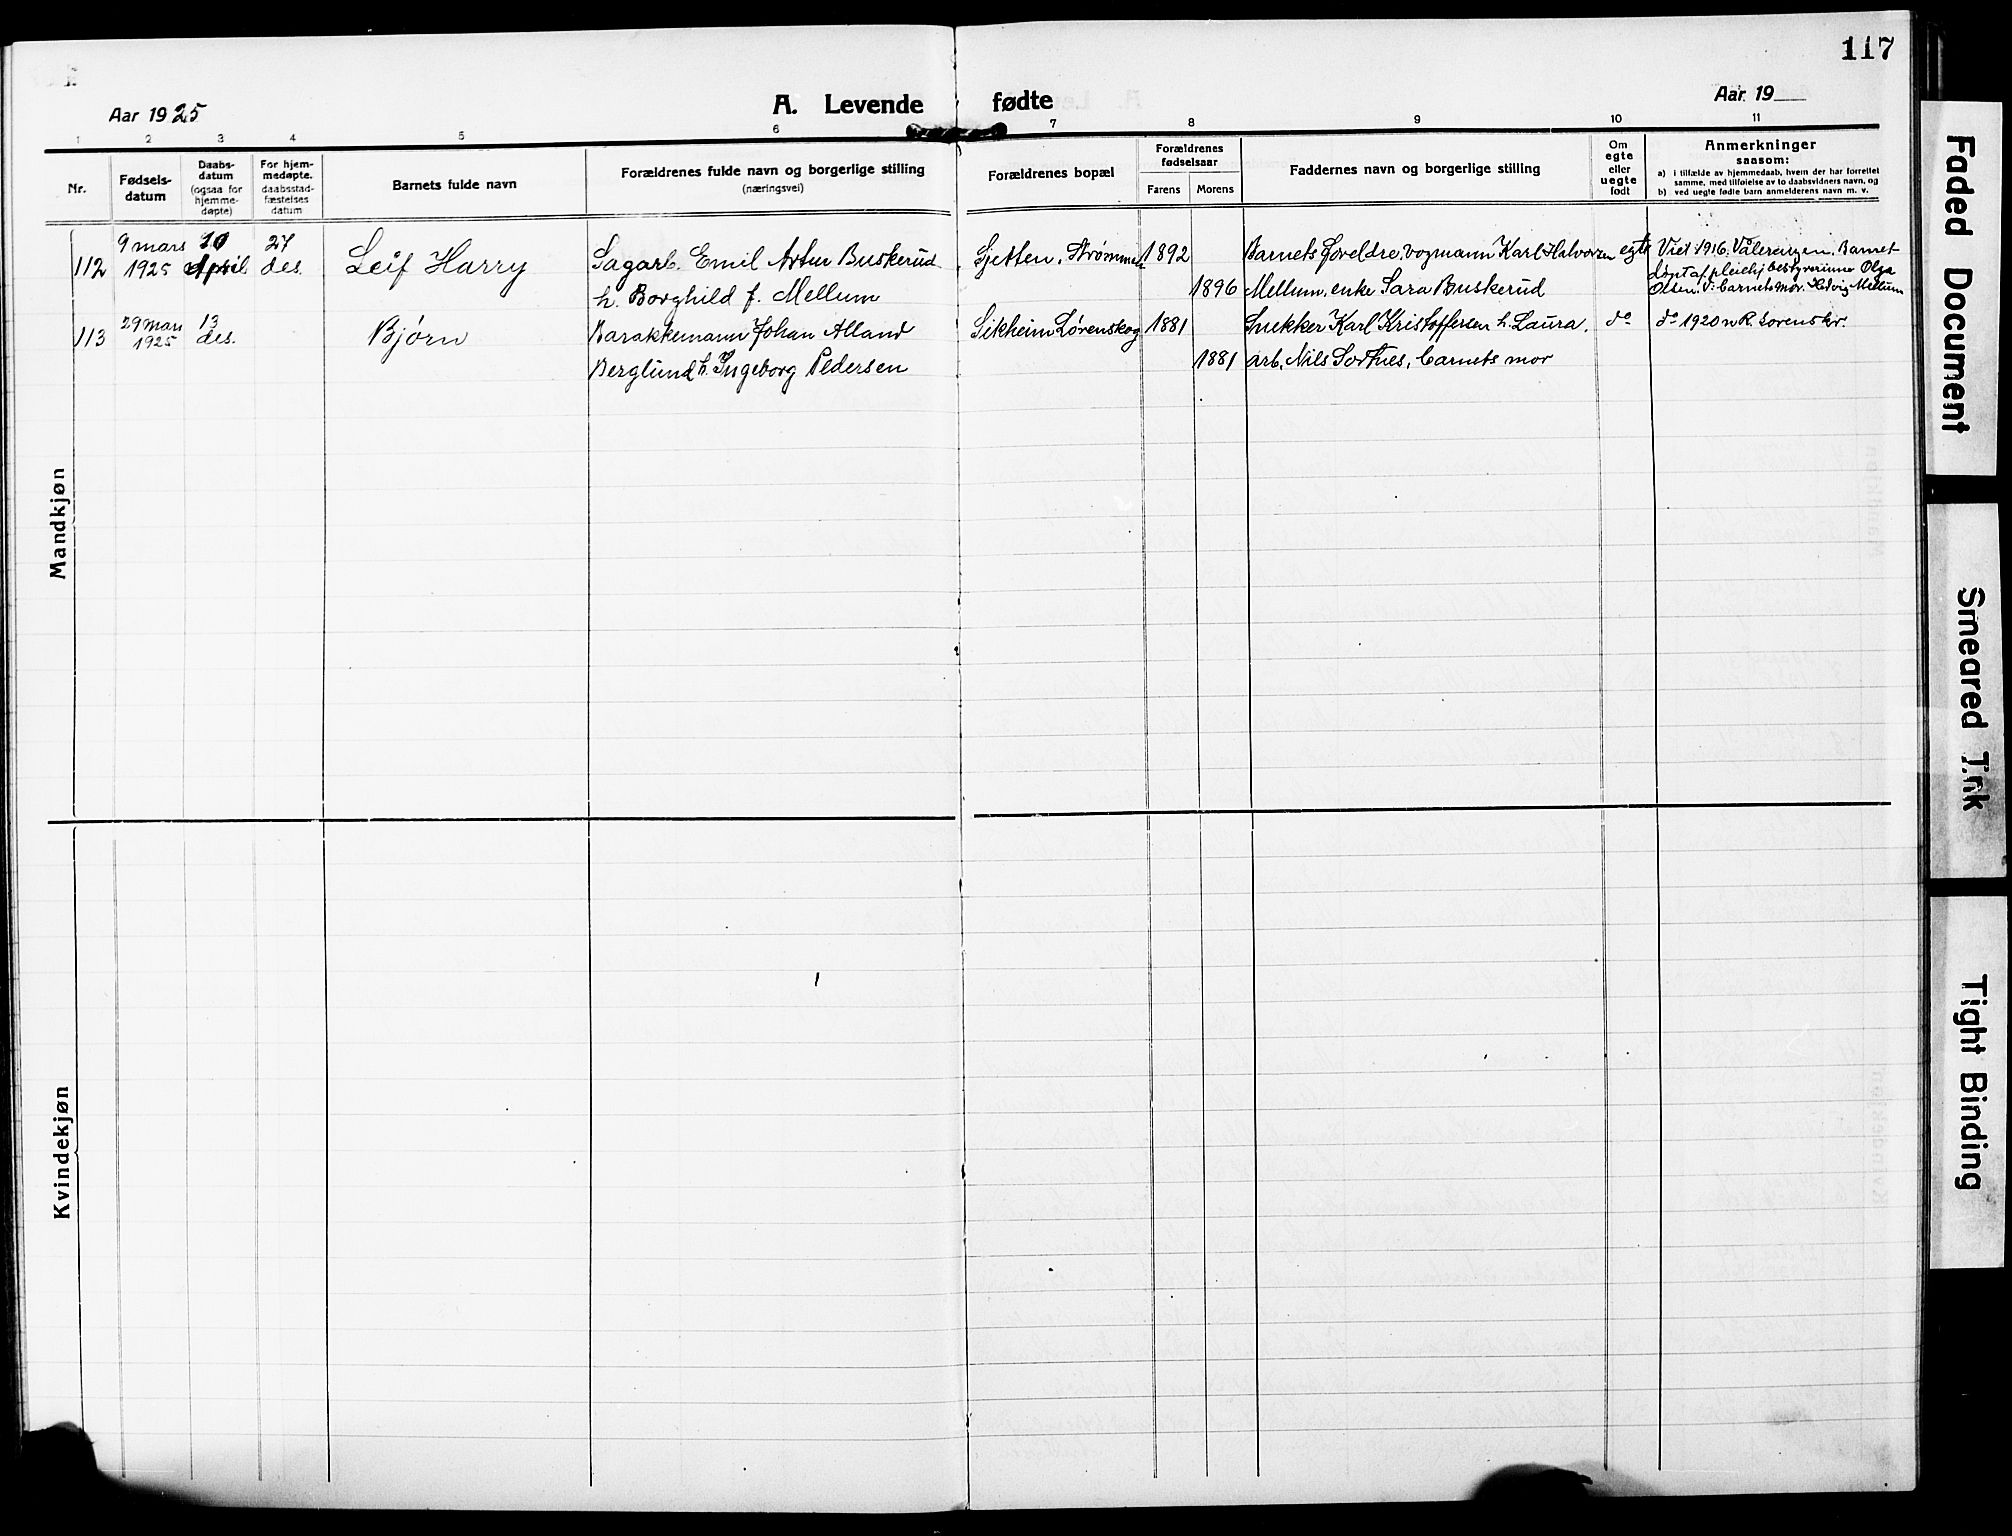 117
Aar 1925
A. Levende fødte
Aar 19
1 2 3 4 5 6 7 8 9 10 11
Nr.
Fødsels-
datum
Daabs-
datum
(ogsaa for
hjemme-
døpte)
For hjem-
medøpte.
daabsstad-
fæstelses
datum
Barnets fulde navn
Forældrenes fulde navn og borgerlige stilling
(næringsvei)
Forældrenes bopæl
Forældrenes
fødselsaar
Farens Morens
Faddernes navn og borgerlige stilling
Om
egte
eller
uegte
født
Anmerkninger
saasom:
a) i tilfælde av hjemmedaab, hvem der har forrettet
samme, med tilføielse av to daabsvidners navn, og
b) ved uegte fødte barn anmelderens navn m. v.
Mandkjøn
112
9 mars
1925
10
April
27
des.
Leif Harry
Sagarb. Emil Artur Buskerud
h. Borghild f. Mellum
Sjetten, Strømmen
1892
1896
Barnets foreldre, vognmann Karl Halvorsen
Mellum, enke Sara Buskerud
egte
Viet 1916. Vålerengen. Barnet
døpt af pleiehj bestyrerinne Olga
Olsen. V: barnets mor. Hedvig Mellum
113
29 mars
1925
13
des.
Bjørn
Barakkemann Johan Alland
Berglund h. Ingeborg Pedersen
Sikheim Lørenskog
1881
1881
Snekker Karl Kristoffersen h. Laura,
arb. Nils Sortnes, barnets mor
do
do 1920 n R. Sorenskr.
Kvindekjøn
Faded Document
Smeared Ink
Tight Binding